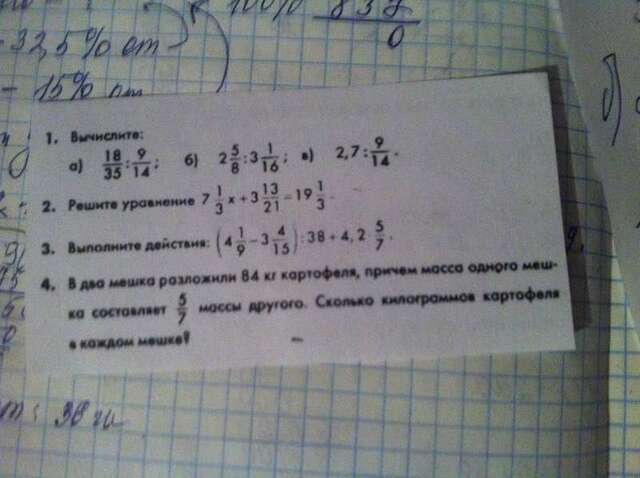 32,5% от
100% 838
0
- 15%
б)
1. Вычислите:
а) 18/35 : 9/14 ; б) 2 5/8 : 3 1/16 ; в) 2,7 : 9/14 .
2. Решите уравнение 7 1/3 x + 3 13/21 = 19 1/3 .
3. Выполните действия: (4 1/9 - 3 4/15) : 38 + 4,2 · 5/7 .
4. В два мешка разложили 84 кг картофеля, причем масса одного меш-
ка составляет 5/7 массы другого. Сколько килограммов картофеля
в каждом мешке?